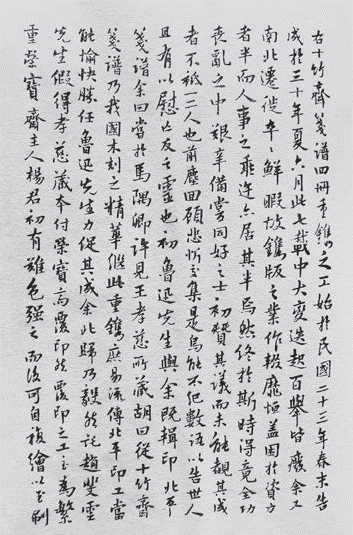 右十竹齋箋譜四冊重鐫之工始於民國二十三年春末告
成於三十年夏六月此七載中大變迭起百舉皆廢余亦
南北遷徙卒卒鮮暇故鐫版之業作輟靡恒蓋困於資力
者半而人事之乖迕亦居其半焉然終於斯時得竟全功
喪亂之中艱辛備嘗同好之士初贊其議而未能覩其成
者不祗一二人也前塵回顧悲忻交集是烏能不紀數語以告世人
且有以慰亡友之靈也初魯迅先生與余既輯印北平
箋譜余曰嘗於馬隅卿許見王孝慈所藏胡曰從十竹齋
箋譜乃我國木刻之精華繼此重鐫庶易流傳北平印工當
能愉快勝任魯迅先生力促其成余北歸乃毅然託趙斐雲
先生假得孝慈藏本付榮寶齋覆印然覆印之工至為繁
重榮寶齋主人楊君初有難色強之而後可自複繪以至刷